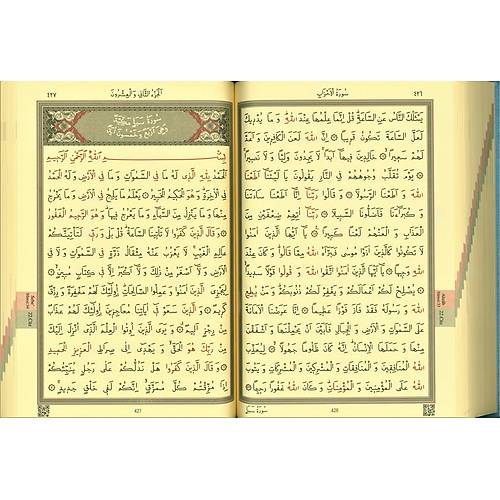 سُورَةُ الْاَحْزَابِ
٤٢٦
يَسْـَٔلُكَ النَّاسُ عَنِ السَّاعَةِ قُلْ اِنَّمَا عِلْمُهَا عِنْدَ اللّٰهِ وَمَا يُدْرِيكَ
لَعَلَّ السَّاعَةَ تَكُونُ قَرِيبًا ۞ اِنَّ اللّٰهَ لَعَنَ الْكَافِرِينَ وَاَعَدَّ
لَهُمْ سَعِيرًا ۞ خَالِدِينَ فِيهَا اَبَدًا لَا يَجِدُونَ وَلِيًّا وَلَا نَصِيرًا ۞
يَوْمَ تُقَلَّبُ وُجُوهُهُمْ فِي النَّارِ يَقُولُونَ يَا لَيْتَنَا اَطَعْنَا
اللّٰهَ وَاَطَعْنَا الرَّسُولَا ۞ وَقَالُوا رَبَّنَا اِنَّا اَطَعْنَا سَادَتَنَا
وَكُبَرَاءَنَا فَاَضَلُّونَا السَّبِيلَا ۞ رَبَّنَا اٰتِهِمْ ضِعْفَيْنِ مِنَ
الْعَذَابِ وَالْعَنْهُمْ لَعْنًا كَبِيرًا ۞ يَا اَيُّهَا الَّذِينَ اٰمَنُوا
لَا تَكُونُوا كَالَّذِينَ اٰذَوْا مُوسٰى فَبَرَّاَهُ اللّٰهُ مِمَّا قَالُوا وَكَانَ عِنْدَ
اللّٰهِ وَجِيهًا ۞ يَا اَيُّهَا الَّذِينَ اٰمَنُوا اتَّقُوا اللّٰهَ وَقُولُوا قَوْلًا سَدِيدًا ۞
يُصْلِحْ لَكُمْ اَعْمَالَكُمْ وَيَغْفِرْ لَكُمْ ذُنُوبَكُمْ وَمَنْ يُطِعِ
اللّٰهَ وَرَسُولَهُ فَقَدْ فَازَ فَوْزًا عَظِيمًا ۞ اِنَّا عَرَضْنَا الْاَمَانَةَ
عَلَى السَّمٰوَاتِ وَالْاَرْضِ وَالْجِبَالِ فَاَبَيْنَ اَنْ يَحْمِلْنَهَا وَاَشْفَقْنَ
مِنْهَا وَحَمَلَهَا الْاِنْسَانُ اِنَّهُ كَانَ ظَلُومًا جَهُولًا ۞ لِيُعَذِّبَ
اللّٰهُ الْمُنَافِقِينَ وَالْمُنَافِقَاتِ وَالْمُشْرِكِينَ وَالْمُشْرِكَاتِ وَيَتُوبَ
اللّٰهُ عَلَى الْمُؤْمِنِينَ وَالْمُؤْمِنَاتِ وَكَانَ اللّٰهُ غَفُورًا رَحِيمًا ۞
426
سُورَةُ سَبَأٍ
22.Cüz
اَلْجُزْءُ الثَّانِي وَالْعِشْرُونَ
٤٢٧
سُورَةُ سَبَأٍ مَكِّيَّةٌ
وَهِيَ اَرْبَعٌ وَخَمْسُونَ اٰيَةً
بِسْمِ اللّٰهِ الرَّحْمٰنِ الرَّحِيمِ
اَلْحَمْدُ لِلّٰهِ الَّذِي لَهُ مَا فِي السَّمٰوَاتِ وَمَا فِي الْاَرْضِ وَلَهُ الْحَمْدُ
فِي الْاٰخِرَةِ وَهُوَ الْحَكِيمُ الْخَبِيرُ ۞ يَعْلَمُ مَا يَلِجُ فِي الْاَرْضِ وَمَا يَخْرُجُ
مِنْهَا وَمَا يَنْزِلُ مِنَ السَّمَاءِ وَمَا يَعْرُجُ فِيهَا وَهُوَ الرَّحِيمُ الْغَفُورُ
۞ وَقَالَ الَّذِينَ كَفَرُوا لَا تَأْتِينَا السَّاعَةُ قُلْ بَلٰى وَرَبِّي لَتَأْتِيَنَّكُمْ
عَالِمِ الْغَيْبِ لَا يَعْزُبُ عَنْهُ مِثْقَالُ ذَرَّةٍ فِي السَّمٰوَاتِ وَلَا فِي
الْاَرْضِ وَلَا اَصْغَرُ مِنْ ذٰلِكَ وَلَا اَكْبَرُ اِلَّا فِي كِتَابٍ مُبِينٍ ۞
لِيَجْزِيَ الَّذِينَ اٰمَنُوا وَعَمِلُوا الصَّالِحَاتِ اُولٰئِكَ لَهُمْ مَغْفِرَةٌ وَرِزْقٌ
كَرِيمٌ ۞ وَالَّذِينَ سَعَوْ فِي اٰيَاتِنَا مُعَاجِزِينَ اُولٰئِكَ لَهُمْ عَذَابٌ
مِنْ رِجْزٍ اَلِيمٌ ۞ وَيَرَى الَّذِينَ اُوتُوا الْعِلْمَ الَّذِي اُنْزِلَ اِلَيْكَ
مِنْ رَبِّكَ هُوَ الْحَقَّ وَيَهْدِي اِلٰى صِرَاطِ الْعَزِيزِ الْحَمِيدِ
۞ وَقَالَ الَّذِينَ كَفَرُوا هَلْ نَدُلُّكُمْ عَلٰى رَجُلٍ يُنَبِّئُكُمْ
اِذَا مُزِّقْتُمْ كُلَّ مُمَزَّقٍ اِنَّكُمْ لَفِي خَلْقٍ جَدِيدٍ ۞
427
22.Cüz